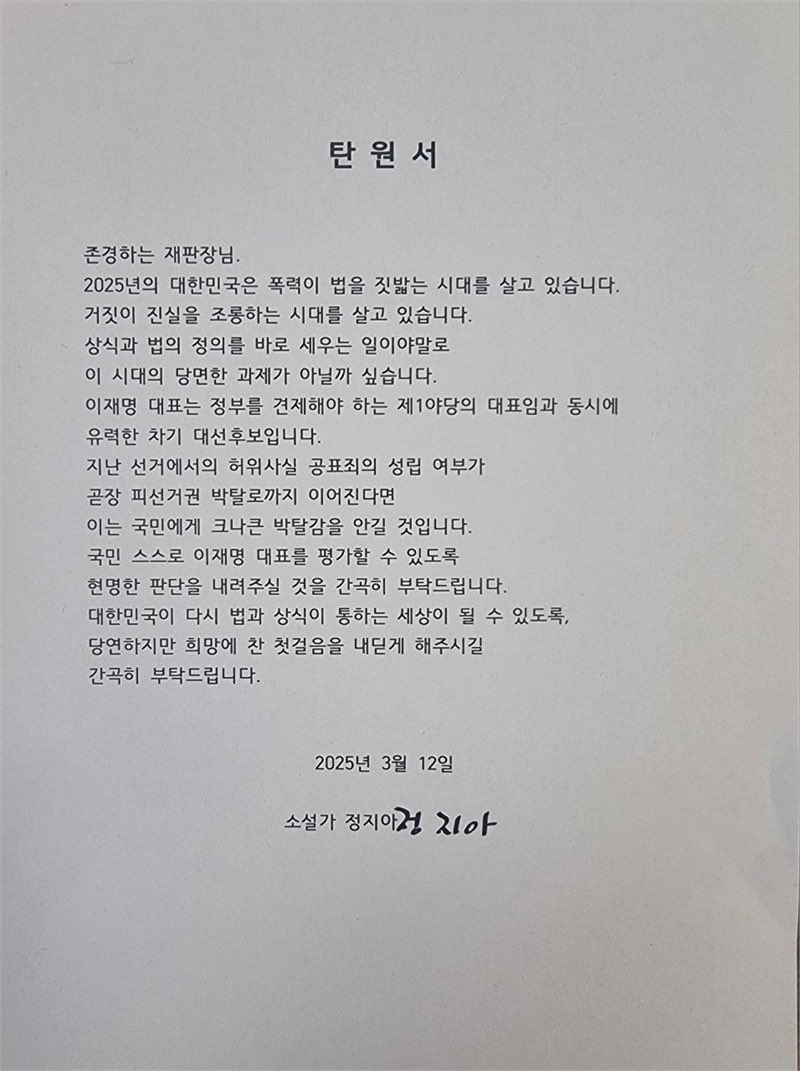 탄 원 서
존경하는 재판장님.
2025년의 대한민국은 폭력이 법을 짓밟는 시대를 살고 있습니다.
거짓이 진실을 조롱하는 시대를 살고 있습니다.
상식과 법의 정의를 바로 세우는 일이야말로
이 시대의 당면한 과제가 아닐까 싶습니다.
이재명 대표는 정부를 견제해야 하는 제1야당의 대표임과 동시에
유력한 차기 대선후보입니다.
지난 선거에서의 허위사실 공표죄의 성립 여부가
곧장 피선거권 박탈로까지 이어진다면
이는 국민에게 크나큰 박탈감을 안길 것입니다.
국민 스스로 이재명 대표를 평가할 수 있도록
현명한 판단을 내려주실 것을 간곡히 부탁드립니다.
대한민국이 다시 법과 상식이 통하는 세상이 될 수 있도록,
당연하지만 희망에 찬 첫걸음을 내딛게 해주시길
간곡히 부탁드립니다.
2025년 3월 12일
소설가 정지아 정 지아